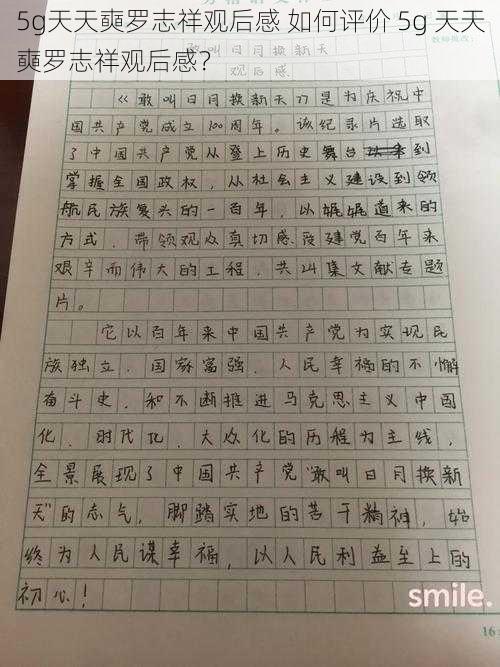 5g天天奭罗志祥观后感 如何评价 5g 天天
奭罗志祥观后感？
敢叫日月换新天
观后感
《敢叫日月换新天》是为庆祝中
国共产党成立100周年。该纪录片选取
了中国共产党从登上历史舞台以来到
掌握全国政权，从社会主义建设到领
航民族复头的一百年，以娓娓道来的
方式，带领观众真切感受建党百年来
艰辛而伟大的工程，共24集文献专题
片。
它以百年来中国共产党为实现民
族独立，国家富强，人民幸福的不懈
奋斗史，和不断推进马克思主义中国
化，时代化，大众化的历程为主线，
全景展现了中国共产党"敢叫日月换新
天"的志气，脚踏实地的苦干精神，始
终为人民谋幸福，以人民利益至上的
初心！
smile.
16